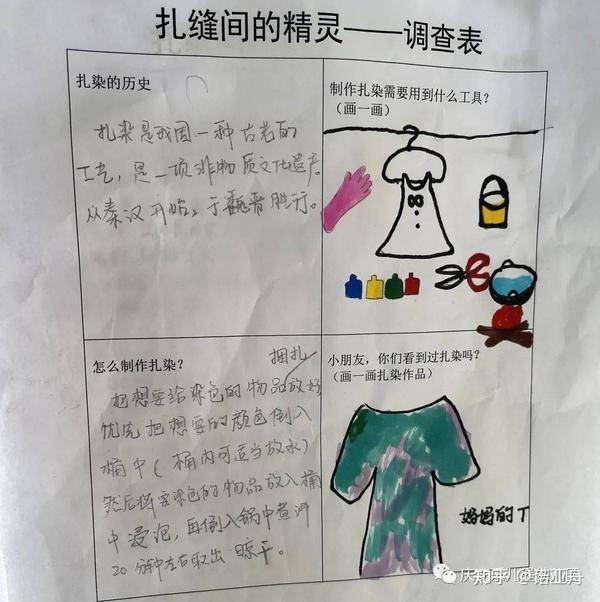 扎缝间的精灵——调查表
扎染的历史
扎染是我国一种古老的
工艺，是一项非物质文化遗产。
从秦汉开始，于魏晋胜行。
制作扎染需要用到什么工具？
（画一画）
怎么制作扎染？
捆扎
把想要给染色的物品放好
优先把想要的颜色倒入
桶中（桶内可适当放水）
然后将要染色的物品放入桶
中浸泡，再倒入锅中煮沸
20分钟左右取出晾干。
小朋友，你们看到过扎染吗？
（画一画扎染作品）
妈妈的T
知乎 @诺亚丹